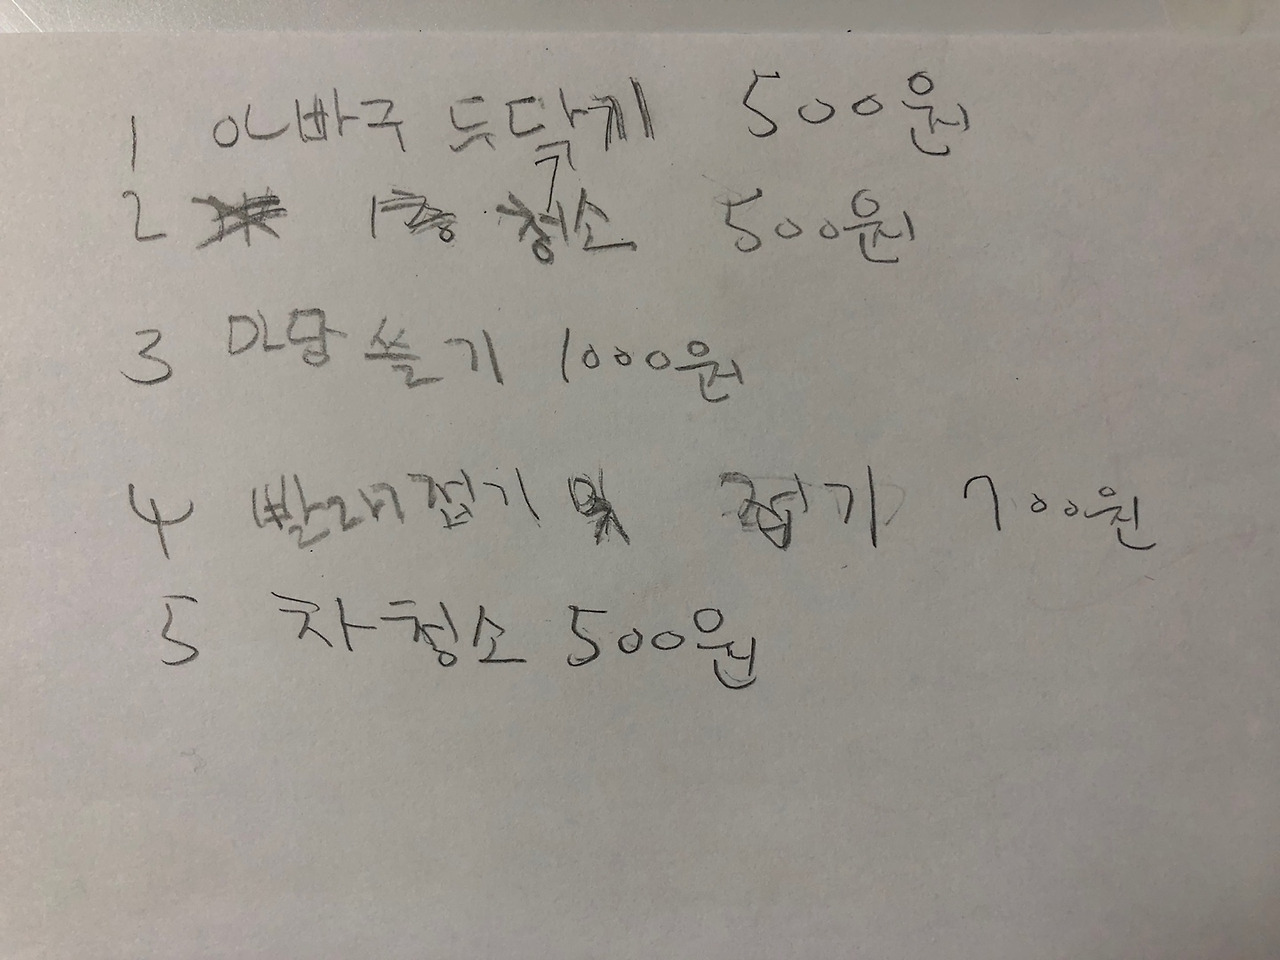 1 아빠구 두닥게 500원
2 1층 청소 500원
3 마당 쓸기 1000원
4 빨래접기 접기 700원
5 차청소 500원